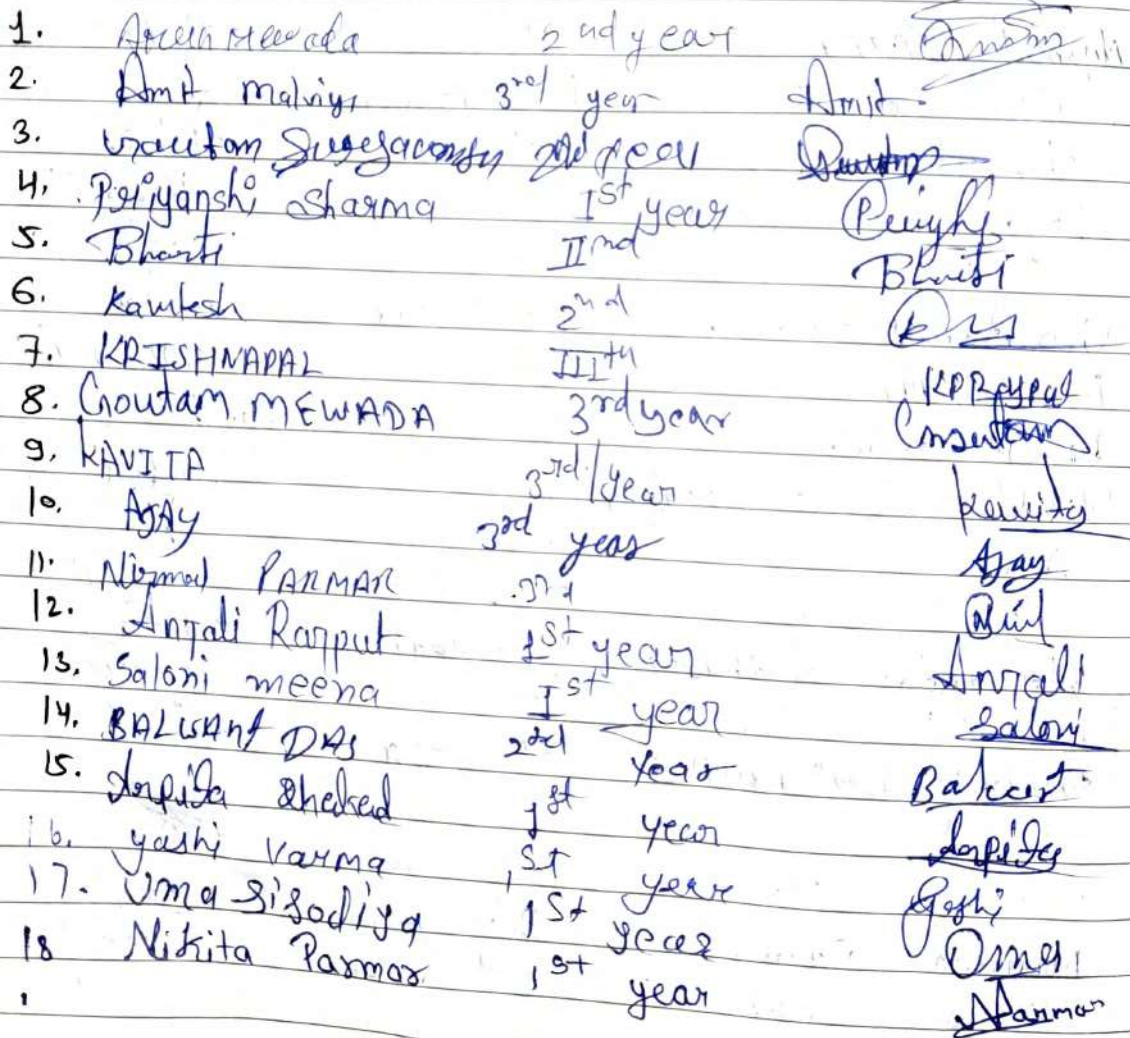 1. Arun Mewada 2nd year
2. Amit Malviya 3rd year Amit
3. Grautam 2nd year
4. Priyanshi Sharma Ist year
5. Bharti IInd Bharti
6. Kamlesh 2nd
7. KRISHNAPAL IIIth KPRajpal
8. Goutam MEWADA 3rd year Goutam
9. KAVITA 3rd year Kavita
10. AJAY 3rd year Ajay
11. Nirmal PARMAR 3rd
12. Anjali Rajput 1st year Anjali
13. Saloni meena Ist year Saloni
14. BALWANT DAS 2nd Year
15. Arpita 1st year Arpita
16. yashi Varma 1st year Yashi
17. Uma Sisodiya 1st year Uma
18 Nikita Parmar 1st year NParmar